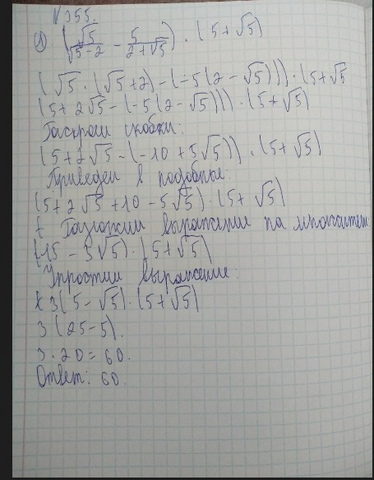 №355.
1) (√5/(√5-2) - 5/(2+√5)) · (5+√5)
(√5 · (√5+2) - (-5(2-√5))) · (5+√5
(5+2√5 - (-5(2-√5))) · (5+√5)
Раскроем скобки:
(5+2√5 - (-10+5√5)) · (5+√5)
Приведем в подобные
(5+2√5+10-5√5) · (5+√5)
Разложим выражение на множители
(15-3√5) · (5+√5)
Упростим выражение.
3(5-√5) · (5+√5)
3(25-5).
3·20=60.
Ответ: 60.